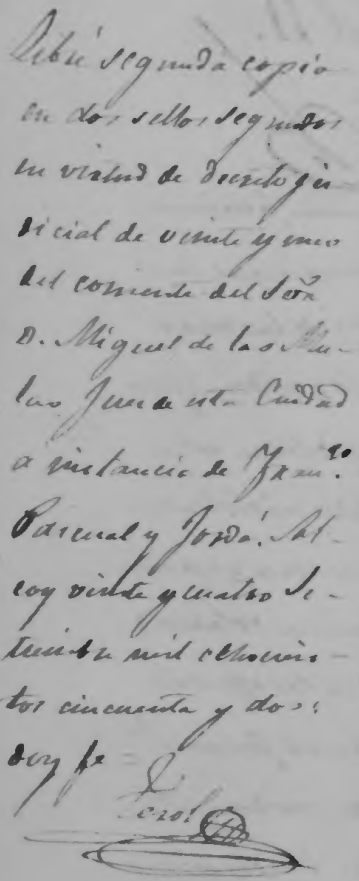 Libré segunda copia
en dos sellos segundos
en virtud de decreto ju-
dicial de veinte y uno
del corriente del Señ
D. Miguel de las Mu-
las Juez de esta Ciudad
a instancia de Fran.co
Pascual y Jordá. Al-
coy veinte y cuatro Se-
tiembre mil ochocien-
tos cincuenta y dos:
doy fe